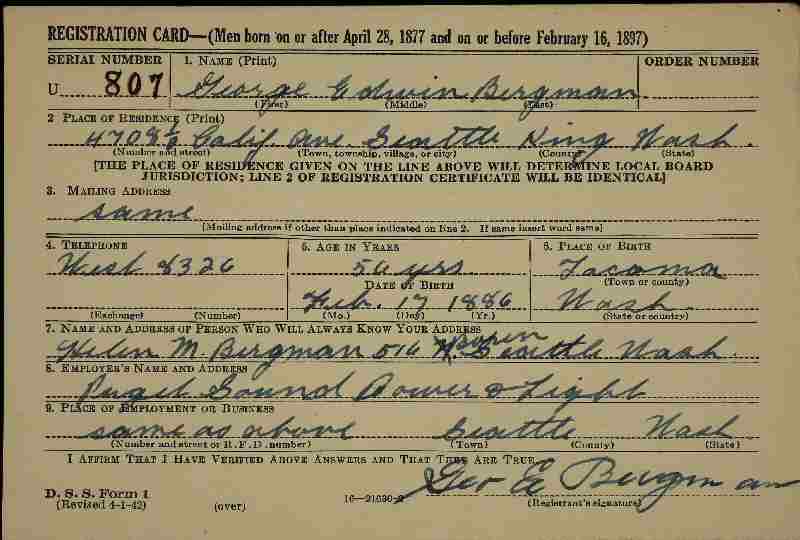 REGISTRATION CARD—(Men born on or after April 28, 1877 and on or before February 16, 1897)
SERIAL NUMBER 1. NAME (Print) ORDER NUMBER
U 807 George Edwin Bergman
(First) (Middle) (Last)
2 PLACE OF RESIDENCE (Print)
4708½ Calif. Ave. Seattle King Wash.
(Number and street) (Town, township, village, or city) (County) (State)
[THE PLACE OF RESIDENCE GIVEN ON THE LINE ABOVE WILL DETERMINE LOCAL BOARD
JURISDICTION; LINE 2 OF REGISTRATION CERTIFICATE WILL BE IDENTICAL]
3. MAILING ADDRESS
same
[Mailing address if other than place indicated on line 2. If same insert word same]
4. TELEPHONE 5. AGE IN YEARS 6. PLACE OF BIRTH
West 8326 56 yrs Tacoma
DATE OF BIRTH (Town or county)
Feb. 17 1886 Wash.
(Exchange) (Number) (Mo.) (Day) (Yr.) (State or country)
7. NAME AND ADDRESS OF PERSON WHO WILL ALWAYS KNOW YOUR ADDRESS
Helen M. Bergman 516 Boren Seattle Wash.
8. EMPLOYER'S NAME AND ADDRESS
Puget Sound Power & Light
9. PLACE OF EMPLOYMENT OR BUSINESS
same as above Seattle Wash
(Number and street or R. F. D. number) (Town) (County) (State)
I AFFIRM THAT I HAVE VERIFIED ABOVE ANSWERS AND THAT THEY ARE TRUE.
Geo E Bergman
D. S. S. Form 1
(Revised 4-1-42) (over) 16—21630-2 (Registrant's signature)